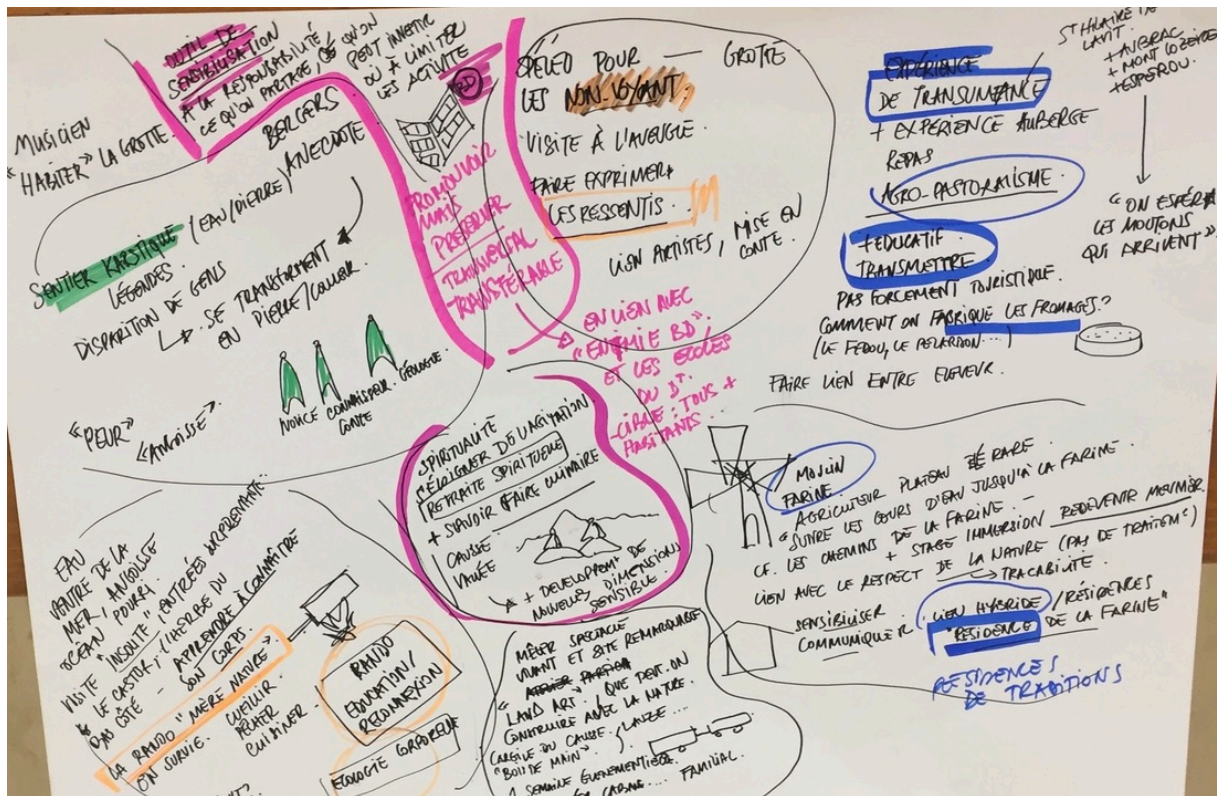 OUTIL DE
SENSIBILISATION
À LA RESPONSABILITÉ
CE QU'ON PARTAGE, CE QU'ON
PEUT INVESTIR
OÙ À LIMITER
LES ACTIVITÉ
BD
MUSICIEN
"HABITER" LA GROTTE.
BERGERS
SENTIER KARSTIQUE /EAU/PIERRE/ANECDOTE
LÉGENDES.
DISPARITION DE GENS
SE TRANSFORMENT
EN PIERRE/COULEUR.
NOVICE CONNAISSEUR GÉOLOGUE
CONTE
"PEUR"
"ANGOISSE"
PROMOUVOIR
MAIS
PRÉSERVER
TRANSVERSAL
TRANSFÉRABLE
EN LIEN AVEC
"ENIMIE BD"/
ET LES ECOLES
DU DT.
-CIBLE: TOUS +
HABITANTS...
SPÉLÉO POUR — GROTTE
LES NON-VOYANT
VISITE À L'AVEUGLE.
FAIRE EXPRIMER
LES RESSENTIS.
LIEN ARTISTES, MISE EN
CONTE.
EXPÉRIENCE
DE TRANSUMANCE
+ EXPÉRIENCE AUBERGE
REPAS
AGRO-PASTORALISME.
+ EDUCATIF.
TRANSMETTRE.
PAS FORCEMENT TOURISTIQUE.
COMMENT ON FABRIQUE LES FROMAGES?
(LE FEDOU, LE PELARDON...)
FAIRE LIEN ENTRE ELEVEUR.
ST HILAIRE DE
LAVIT.
+ AUBRAC
+ MONT LOZERE
+ ESPEROU.
"ON ESPÉR
LES MOUTONS
QUI ARRIVENT".
SPIRITUALITÉ
S'ÉLOIGNER DE L'AGITATION
RETRAITE SPIRITUELLE
+ SAVOIR FAIRE CULINAIRE
CAUSSE
VALLÉE
+ DEVELOPPMT DE
NOUVELLES DIMENSIONS
SENSIBLE.
MOULIN
FARINE
AGRICULTEUR PLATEAU RARE
"SUIVRE LES COURS D'EAU JUSQU'À LA FARINE
CF. LES CHEMINS DE LA FARINE –
+ STAGE IMMERSION REDEVENIR MEUNIER.
LIEN AVEC LE RESPECT DE LA NATURE (PAS DE TRAITEMT)
TRACABILITÉ.
SENSIBILISER
COMMUNIQUER.
LIEN HYBRIDE/RÉSIDENCES
"RÉSIDENCE DE LA FARINE"
RESIDENCES
DE TRADITIONS
EAU
VENTRE DE LA
MER, ANGOISSE
"OCEAN" POURRI.
VISITE "INSOLITE", ENTRÉES
LE CASTOR, L'HERBE DU
BAS CÔTÉ – APPRENDRE À CONNAÎTRE
SON CORPS.
LA RANDO "MÈRE NATURE"
ON SURVIE. CUEILLIR
PÊCHER
CUISINER –
RANDO
EDUCATION/
RECONNEXION
ECOLOGIE
MÊLER SPECTACLE
VIVANT ET SITE REMARQUABLE
"LAND ART. QUE PEUT-ON
CONSTRUIRE AVEC LA NATURE.
L'ARGILE DU CAUSSE. / LAUZE...
"BOIS DE MAIN".
1 SEMAINE ÉVÉNEMENTIELLE
CABANE... FAMILIAL.